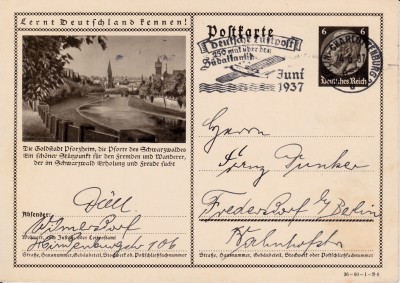 Lernt Deutschland kennen!
Die Goldstadt Pforzheim, die Pforte des Schwarzwaldes
Ein schöner Stützpunkt für den Fremden und Wanderer,
der im Schwarzwald Erholung und Freude sucht
Absender:
Wilmersdorf
106
Wohnort, auch Zustell- oder Leitpostamt
Straße, Hausnummer, Gebäudeteil, Stockwerk od. Postschließfachnummer
Postkarte
Deutsche Luftpost
250 mal über den
Südatlantik
Juni
1937
6 6
Deutsches Reich
CHARLOTTENBURG
Herrn
Punker
Fredersdorf b/Berlin
Bahnhofstr
Straße, Hausnummer, Gebäudeteil, Stockwerk od. Postschließfachnummer